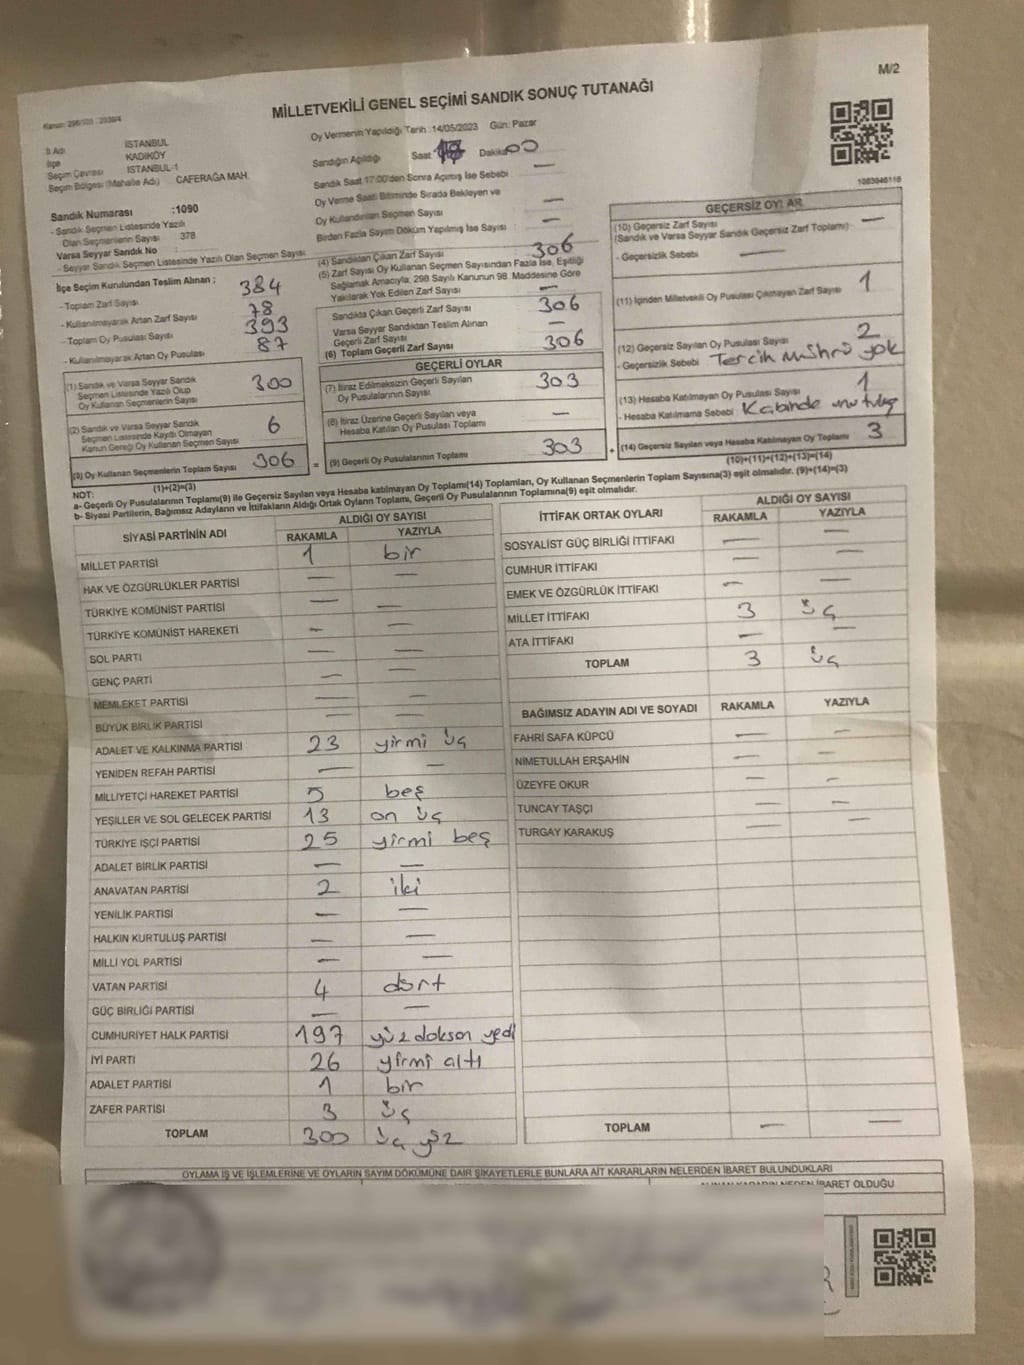 M/2
MİLLETVEKİLİ GENEL SEÇİMİ SANDIK SONUÇ TUTANAĞI
İl Adı İSTANBUL
İlçe KADIKÖY
Seçim Çevresi İSTANBUL-1
Seçim Bölgesi (Mahalle Adı) CAFERAĞA MAH.
Sandık Numarası :1090
- Sandık Seçmen Listesinde Yazılı
Olan Seçmenlerin Sayısı 378
Varsa Seyyar Sandık No
- Seyyar Sandık Seçmen Listesinde Yazılı Olan Seçmen Sayısı
İlçe Seçim Kurulundan Teslim Alınan :
- Toplam Zarf Sayısı 384
- Kullanılmayarak Artan Zarf Sayısı 78
- Toplam Oy Pusulası Sayısı 393
- Kullanılmayarak Artan Oy Pusulası 87
(1) Sandık ve Varsa Seyyar Sandık
Seçmen Listesinde Yazılı Olup
Oy Kullanan Seçmenlerin Sayısı 300
(2) Sandık ve Varsa Seyyar Sandık
Seçmen Listesinde Kaydı Olmayan
Kanun Gereği Oy Kullanan Seçmen Sayısı 6
(3) Oy Kullanan Seçmenlerin Toplam Sayısı 306
(1)+(2)=(3)
Oy Vermenin Yapıldığı Tarih :14/05/2023 Gün: Pazar
Sandığın Açıldığı Saat 17 Dakika 00
Sandık Saat 17:00'den Sonra Açılmış İse Sebebi —
Oy Verme Saati Bitiminde Sırada Bekleyen ve
Oy Kullandırılan Seçmen Sayısı —
Birden Fazla Sayım Döküm Yapılmış İse Sayısı —
(4) Sandıktan Çıkan Zarf Sayısı 306
(5) Zarf Sayısı Oy Kullanan Seçmen Sayısından Fazla İse, Eşitliği
Sağlamak Amacıyla; 298 Sayılı Kanunun 98. Maddesine Göre
Yakılarak Yok Edilen Zarf Sayısı —
Sandıkta Çıkan Geçerli Zarf Sayısı 306
Varsa Seyyar Sandıktan Teslim Alınan
Geçerli Zarf Sayısı —
(6) Toplam Geçerli Zarf Sayısı 306
GEÇERLİ OYLAR
(7) İtiraz Edilmeksizin Geçerli Sayılan
Oy Pusulalarının Sayısı 303
(8) İtiraz Üzerine Geçerli Sayılan veya
Hesaba Katılan Oy Pusulası Toplamı —
= (9) Geçerli Oy Pusulalarının Toplamı 303
1083946118
GEÇERSİZ OYLAR
(10) Geçersiz Zarf Sayısı
(Sandık ve Varsa Seyyar Sandık Geçersiz Zarf Toplamı) —
- Geçersizlik Sebebi —
(11) İçinden Milletvekili Oy Pusulası Çıkmayan Zarf Sayısı 1
(12) Geçersiz Sayılan Oy Pusulası Sayısı 2
- Geçersizlik Sebebi Tercih mührü yok
(13) Hesaba Katılmayan Oy Pusulası Sayısı 1
- Hesaba Katılmama Sebebi Kabinde unutuluş
+ (14) Geçersiz Sayılan veya Hesaba Katılmayan Oy Toplamı 3
(10)+(11)+(12)+(13)=(14)
NOT:
a- Geçerli Oy Pusulalarının Toplamı(9) ile Geçersiz Sayılan veya Hesaba katılmayan Oy Toplamı(14) Toplamları, Oy Kullanan Seçmenlerin Toplam Sayısına(3) eşit olmalıdır. (9)+(14)=(3)
b- Siyasi Partilerin, Bağımsız Adayların ve İttifakların Aldığı Ortak Oyların Toplamı, Geçerli Oy Pusulalarının Toplamına(9) eşit olmalıdır.
SİYASİ PARTİNİN ADI ALDIĞI OY SAYISI
RAKAMLA YAZIYLA
MİLLET PARTİSİ 1 bir
HAK VE ÖZGÜRLÜKLER PARTİSİ — —
TÜRKİYE KOMÜNİST PARTİSİ — —
TÜRKİYE KOMÜNİST HAREKETİ — —
SOL PARTİ — —
GENÇ PARTİ — —
MEMLEKET PARTİSİ — —
BÜYÜK BİRLİK PARTİSİ — —
ADALET VE KALKINMA PARTİSİ 23 yirmi üç
YENİDEN REFAH PARTİSİ — —
MİLLİYETÇİ HAREKET PARTİSİ 5 beş
YEŞİLLER VE SOL GELECEK PARTİSİ 13 on üç
TÜRKİYE İŞÇİ PARTİSİ 25 yirmi beş
ADALET BİRLİK PARTİSİ — —
ANAVATAN PARTİSİ 2 iki
YENİLİK PARTİSİ — —
HALKIN KURTULUŞ PARTİSİ — —
MİLLİ YOL PARTİSİ — —
VATAN PARTİSİ 4 dört
GÜÇ BİRLİĞİ PARTİSİ — —
CUMHURİYET HALK PARTİSİ 197 yüz doksan yedi
İYİ PARTİ 26 yirmi altı
ADALET PARTİSİ 1 bir
ZAFER PARTİSİ 3 üç
TOPLAM 300 üç yüz
İTTİFAK ORTAK OYLARI ALDIĞI OY SAYISI
RAKAMLA YAZIYLA
SOSYALİST GÜÇ BİRLİĞİ İTTİFAKI — —
CUMHUR İTTİFAKI — —
EMEK VE ÖZGÜRLÜK İTTİFAKI — —
MİLLET İTTİFAKI 3 üç
ATA İTTİFAKI — —
TOPLAM 3 üç
BAĞIMSIZ ADAYIN ADI VE SOYADI RAKAMLA YAZIYLA
FAHRİ SAFA KÜPCÜ — —
NİMETULLAH ERŞAHİN — —
ÜZEYFE OKUR — —
TUNCAY TAŞÇI — —
TURGAY KARAKUŞ — —
TOPLAM — —
OYLAMA İŞ VE İŞLEMLERİNE VE OYLARIN SAYIM DÖKÜMÜNE DAİR ŞİKAYETLERLE BUNLARA AİT KARARLARIN NELERDEN İBARET BULUNDUKLARI
ALINAN KARARIN NEDEN İBARET OLDUĞU